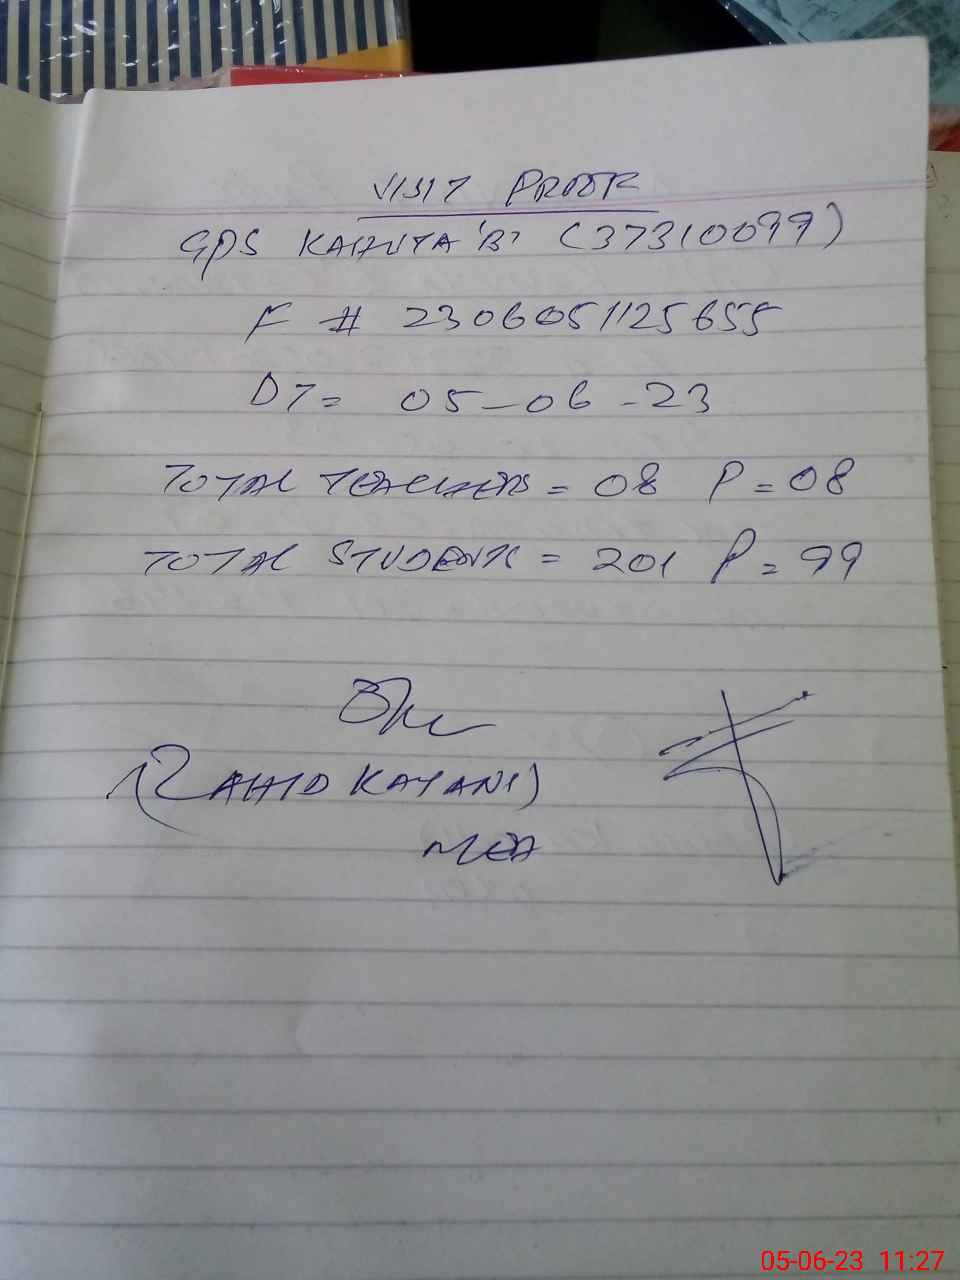 VISIT PROOF
GPS KAHUTA 'B' (37310099)
F # 2306051125655
DT= 05-06-23
TOTAL TEACHERS = 08 P = 08
TOTAL STUDENTS = 201 P = 99
(ZAHID KAYANI)
MEA
05-06-23 11:27